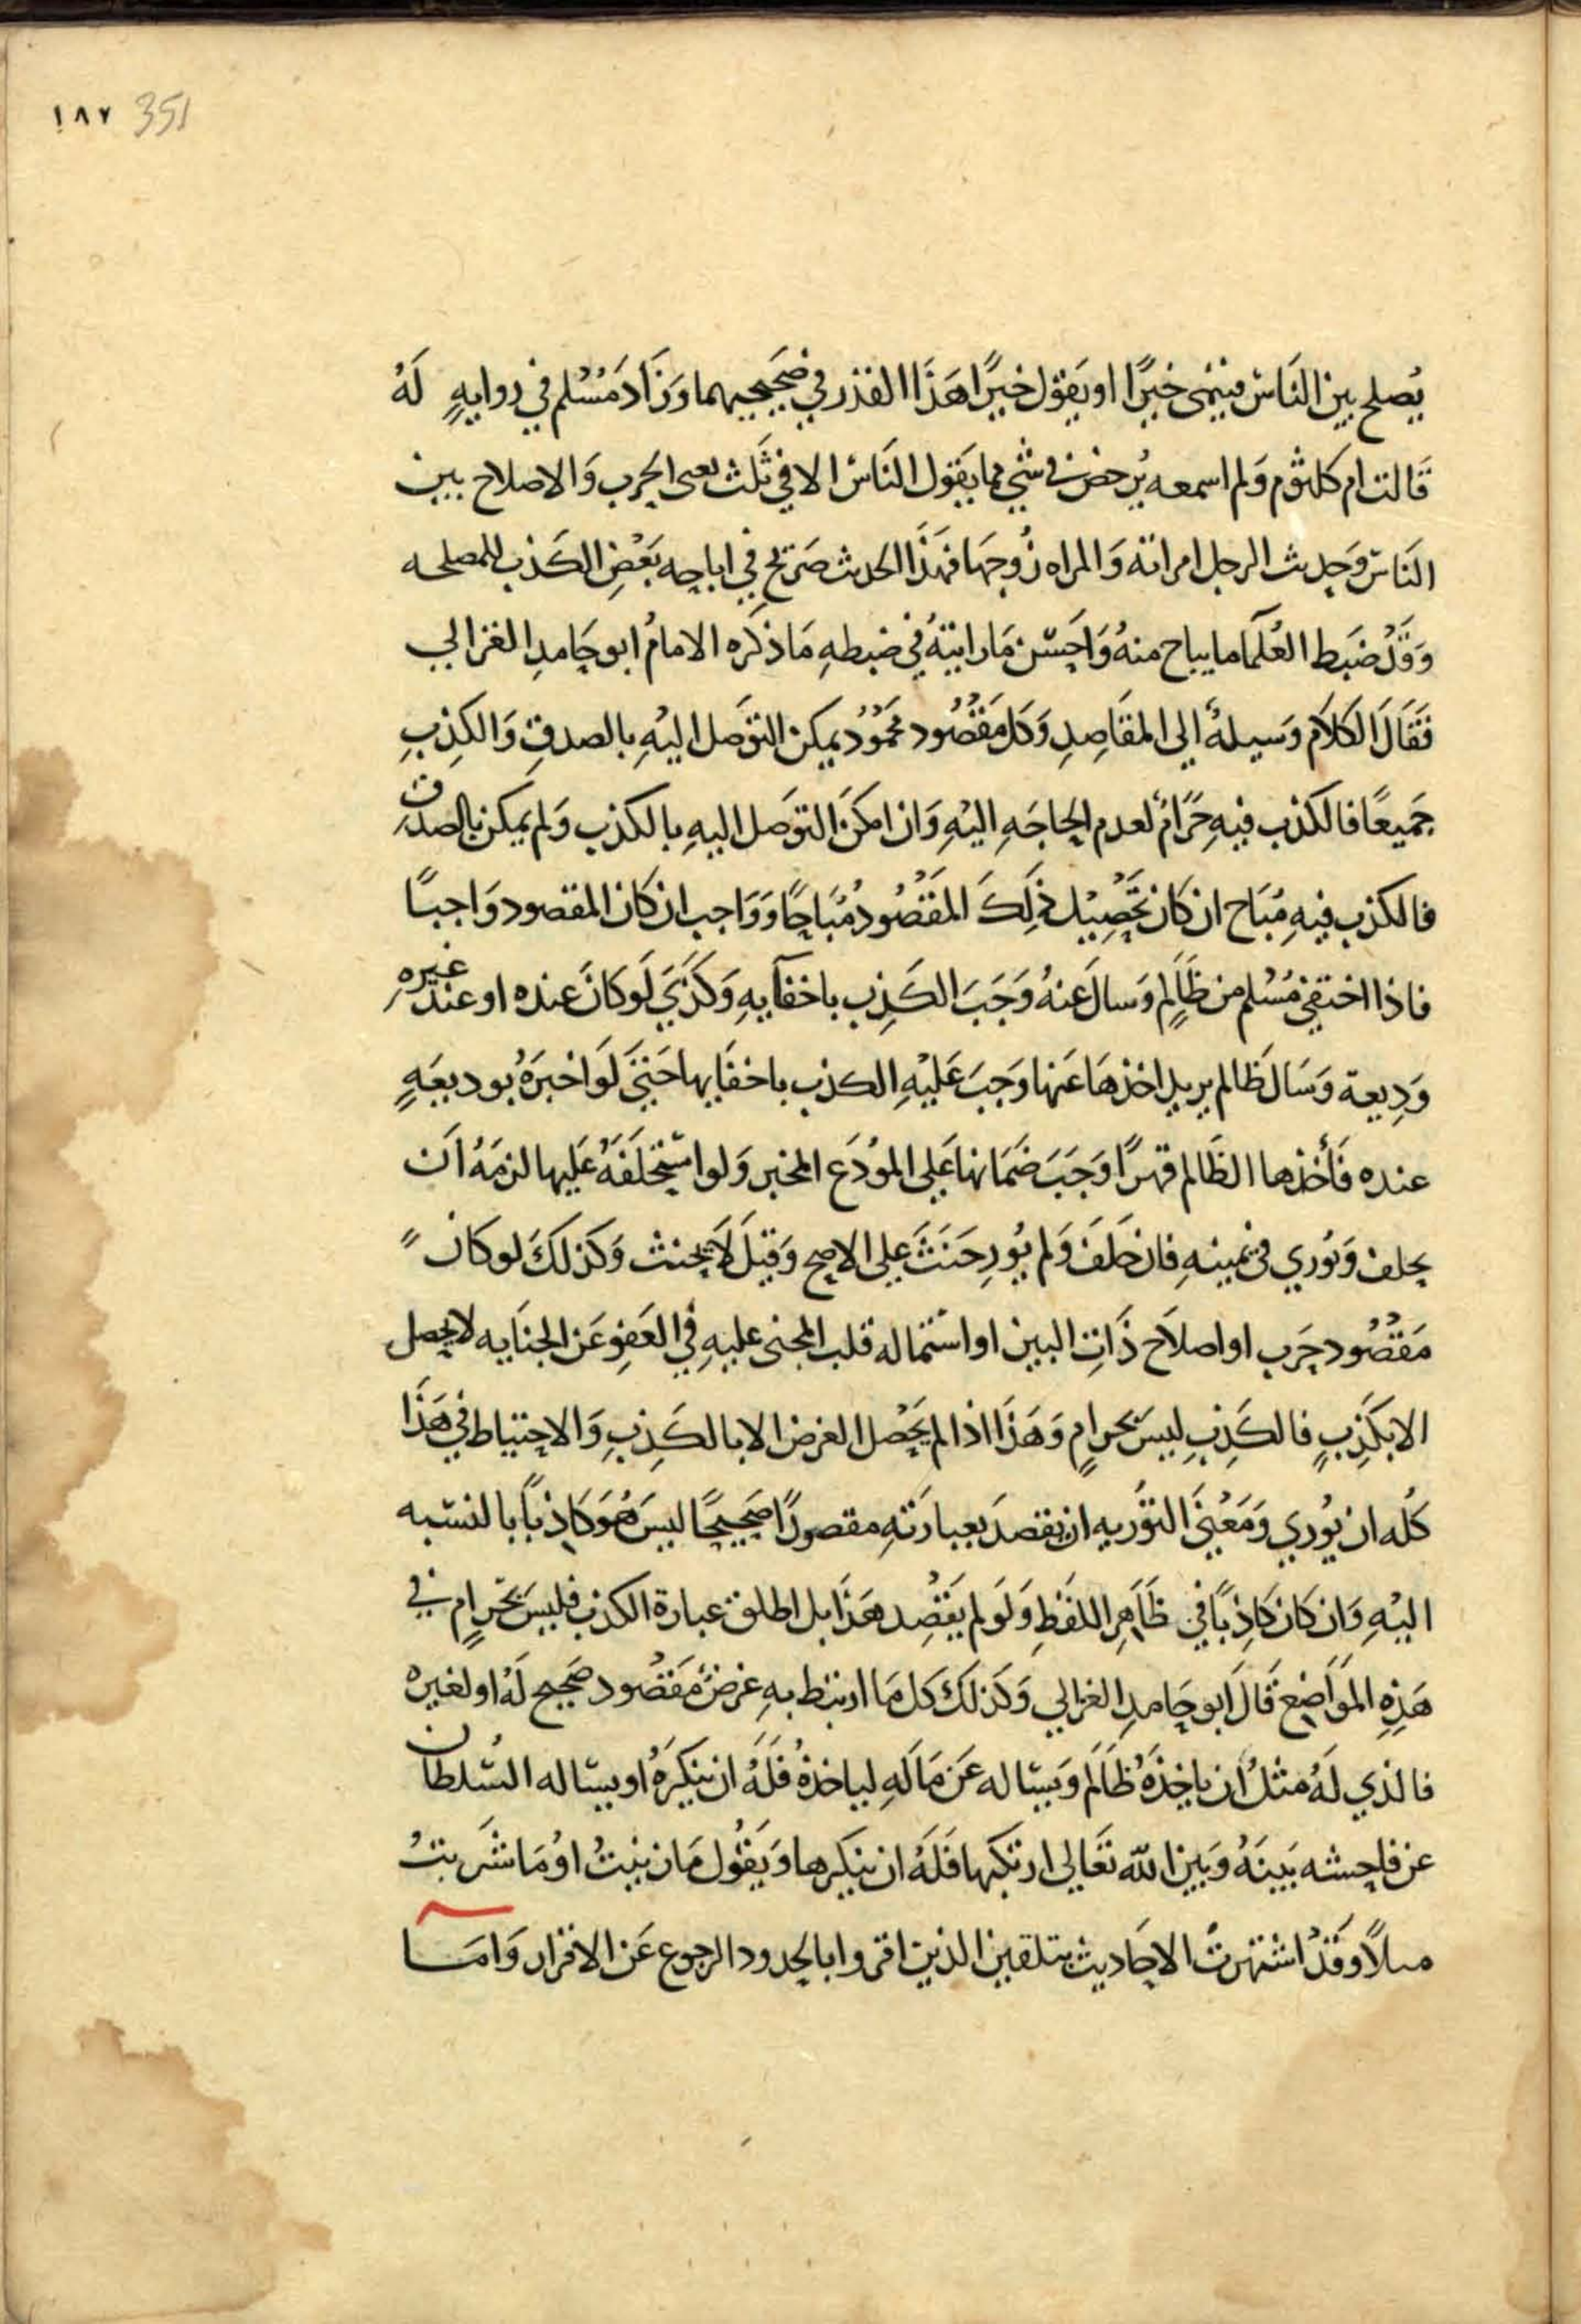 ١٨٧ 351
يُصلح بين النَاس فينمى خيرًا او يَقول خيرًا هَذَا القدر في صَحيحيهما وَزَادَ مُسْلم في روايةٍ لَهُ
قَالت ام كلثوم وَلم اسمعه يُرخص في شي مما يَقول النَاس الا في ثَلث يعنى الحرب وَالاصلاح بين
النَاس وَحديث الرجل امراته وَالمراه زَوجهَا فهَذَا الحديث صَريح في اباحه بَعْضِ الكَذب للمصلحه
وَقَدْ ضَبَط العُلمَا ما يباح منهُ وَاحَسن مَا رايتهُ في ضبطهِ مَا ذكَره الامامُ ابو حَامدِ الغزالي
فَقَالَ الكلاَم وَسيلةٌ الي المقَاصِدِ وَكل مَقْصُود محمُودُ يمكن التوَصل اليْهِ بالصدقِ وَالكِذبِ
جَميعًا فالكذب فيهِ حَرَامٌ لعدم الحاجَهِ اليْهِ وَان امكَنَ التوَصل اليهِ بالكذب وَلم يمكن بالصدقِ
فالكذب فيهِ مُبَاح ان كان تحصِيْل ذلِكَ المقْصُودُ مُبَاحًا وَوَاجب ان كان المقصود وَاجبًا
فاذا اختفي مُسْلم من ظَالمٍ وَسالَ عَنهُ وَجَبَ الكَذِب باخفَآيهِ وَكذَي لَو كانَ عنده او عندَ غيرهِ
وَدِيعة وَسَال ظَالم يريد اخذهَا عَنها وَجَبَ عَليْهِ الكذب باخفَايها حَتيَّ لَو اخبَرَهُ بوديعَهٍ
عنده فَأخذها الظَالم قهرًا وَجَبَ ضَمَانها عَلي المؤدَع المخبر وَلو استَحلَفَهُ عَليها لزمَهُ اَن
يحلف وَيُوري في يمينهِ فان حَلَفَ وَلم يُورِ حَنَثَ عَلي الاصح وَقيْلَ لاَ يحنث وَكذلكَ لو كان
مَقصُود حَرب او اصلاَح ذَاتِ البين او استمالة قلب المجنى عليهِ في العَفوِ عَن الجنَايه لا يحصل
الا بكَذِبٍ فالكَذِبِ ليسَ بحرامٍ وَهَذَا اذا لم يَحْصل الغرض الا بالكَذِبِ وَالاحتياط في هَذَا
كُله ان يُوري وَمَعْنيَ التوْريه ان يقصدَ بعبارَتهِ مقصودًا صَحيحًا ليسَ هُوَ كاذبًا بالنسبه
اليْهِ وَان كان كاذِبًا في ظَاهِرِ اللفظِ وَلَو لم يَقْصِد هَذَا بل اطلق عبارة الكذب فليسَ بحَرامٍ في
هَذِهِ الموَاضِع قَالَ ابو حَامدِ الغزالي وَكذلكَ كل مَا ارتبط بهِ غرضٌ مَقصُود صَحيح لَهُ او لغيره
فالذي لَهُ مثلُ ان يَاخذَهُ ظَالم وَيسَاله عَن مَالَهِ لياخذهُ فَلَهُ ان ينكرَهُ او يسَاله السُلطان
عن فاحشه بَينَهُ وَبين الله تعَالي ارتكبها فَلَهُ ان ينكرها وَيَقُول مَا زنيتُ اوْ مَا شَربتُ
مىلاً وقَدْ اشتهرتْ الاحَاديث بتلقين الذين اقروا بالحدود الرجوع عَن الاقرار وَامَا